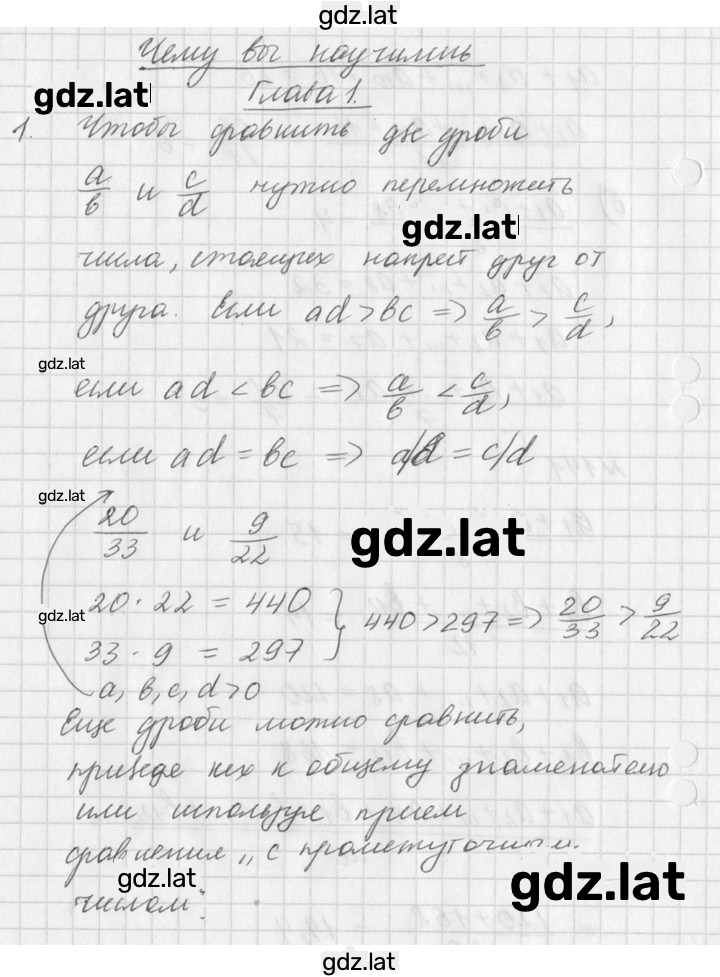 gdz.lat
Чему вы научились
gdz.lat
Глава 1.
1. Чтобы сравнить две дроби
a/b и c/d нужно перемножить
gdz.lat
числа, стоящих напрет друг от
друга. Если ad > bc => a/b > c/d,
gdz.lat
если ad < bc => a/b < c/d,
если ad = bc => a/b = c/d
gdz.lat
20/33 и 9/22
gdz.lat
20 · 22 = 440
33 · 9 = 297 } 440 > 297 => 20/33 > 9/22
gdz.lat
a, b, c, d > 0
Еще дроби можно сравнить,
приведе их к общему знаменателю
или используя прием
сравнения „с промежуточным
gdz.lat
числом“.
gdz.lat
gdz.lat